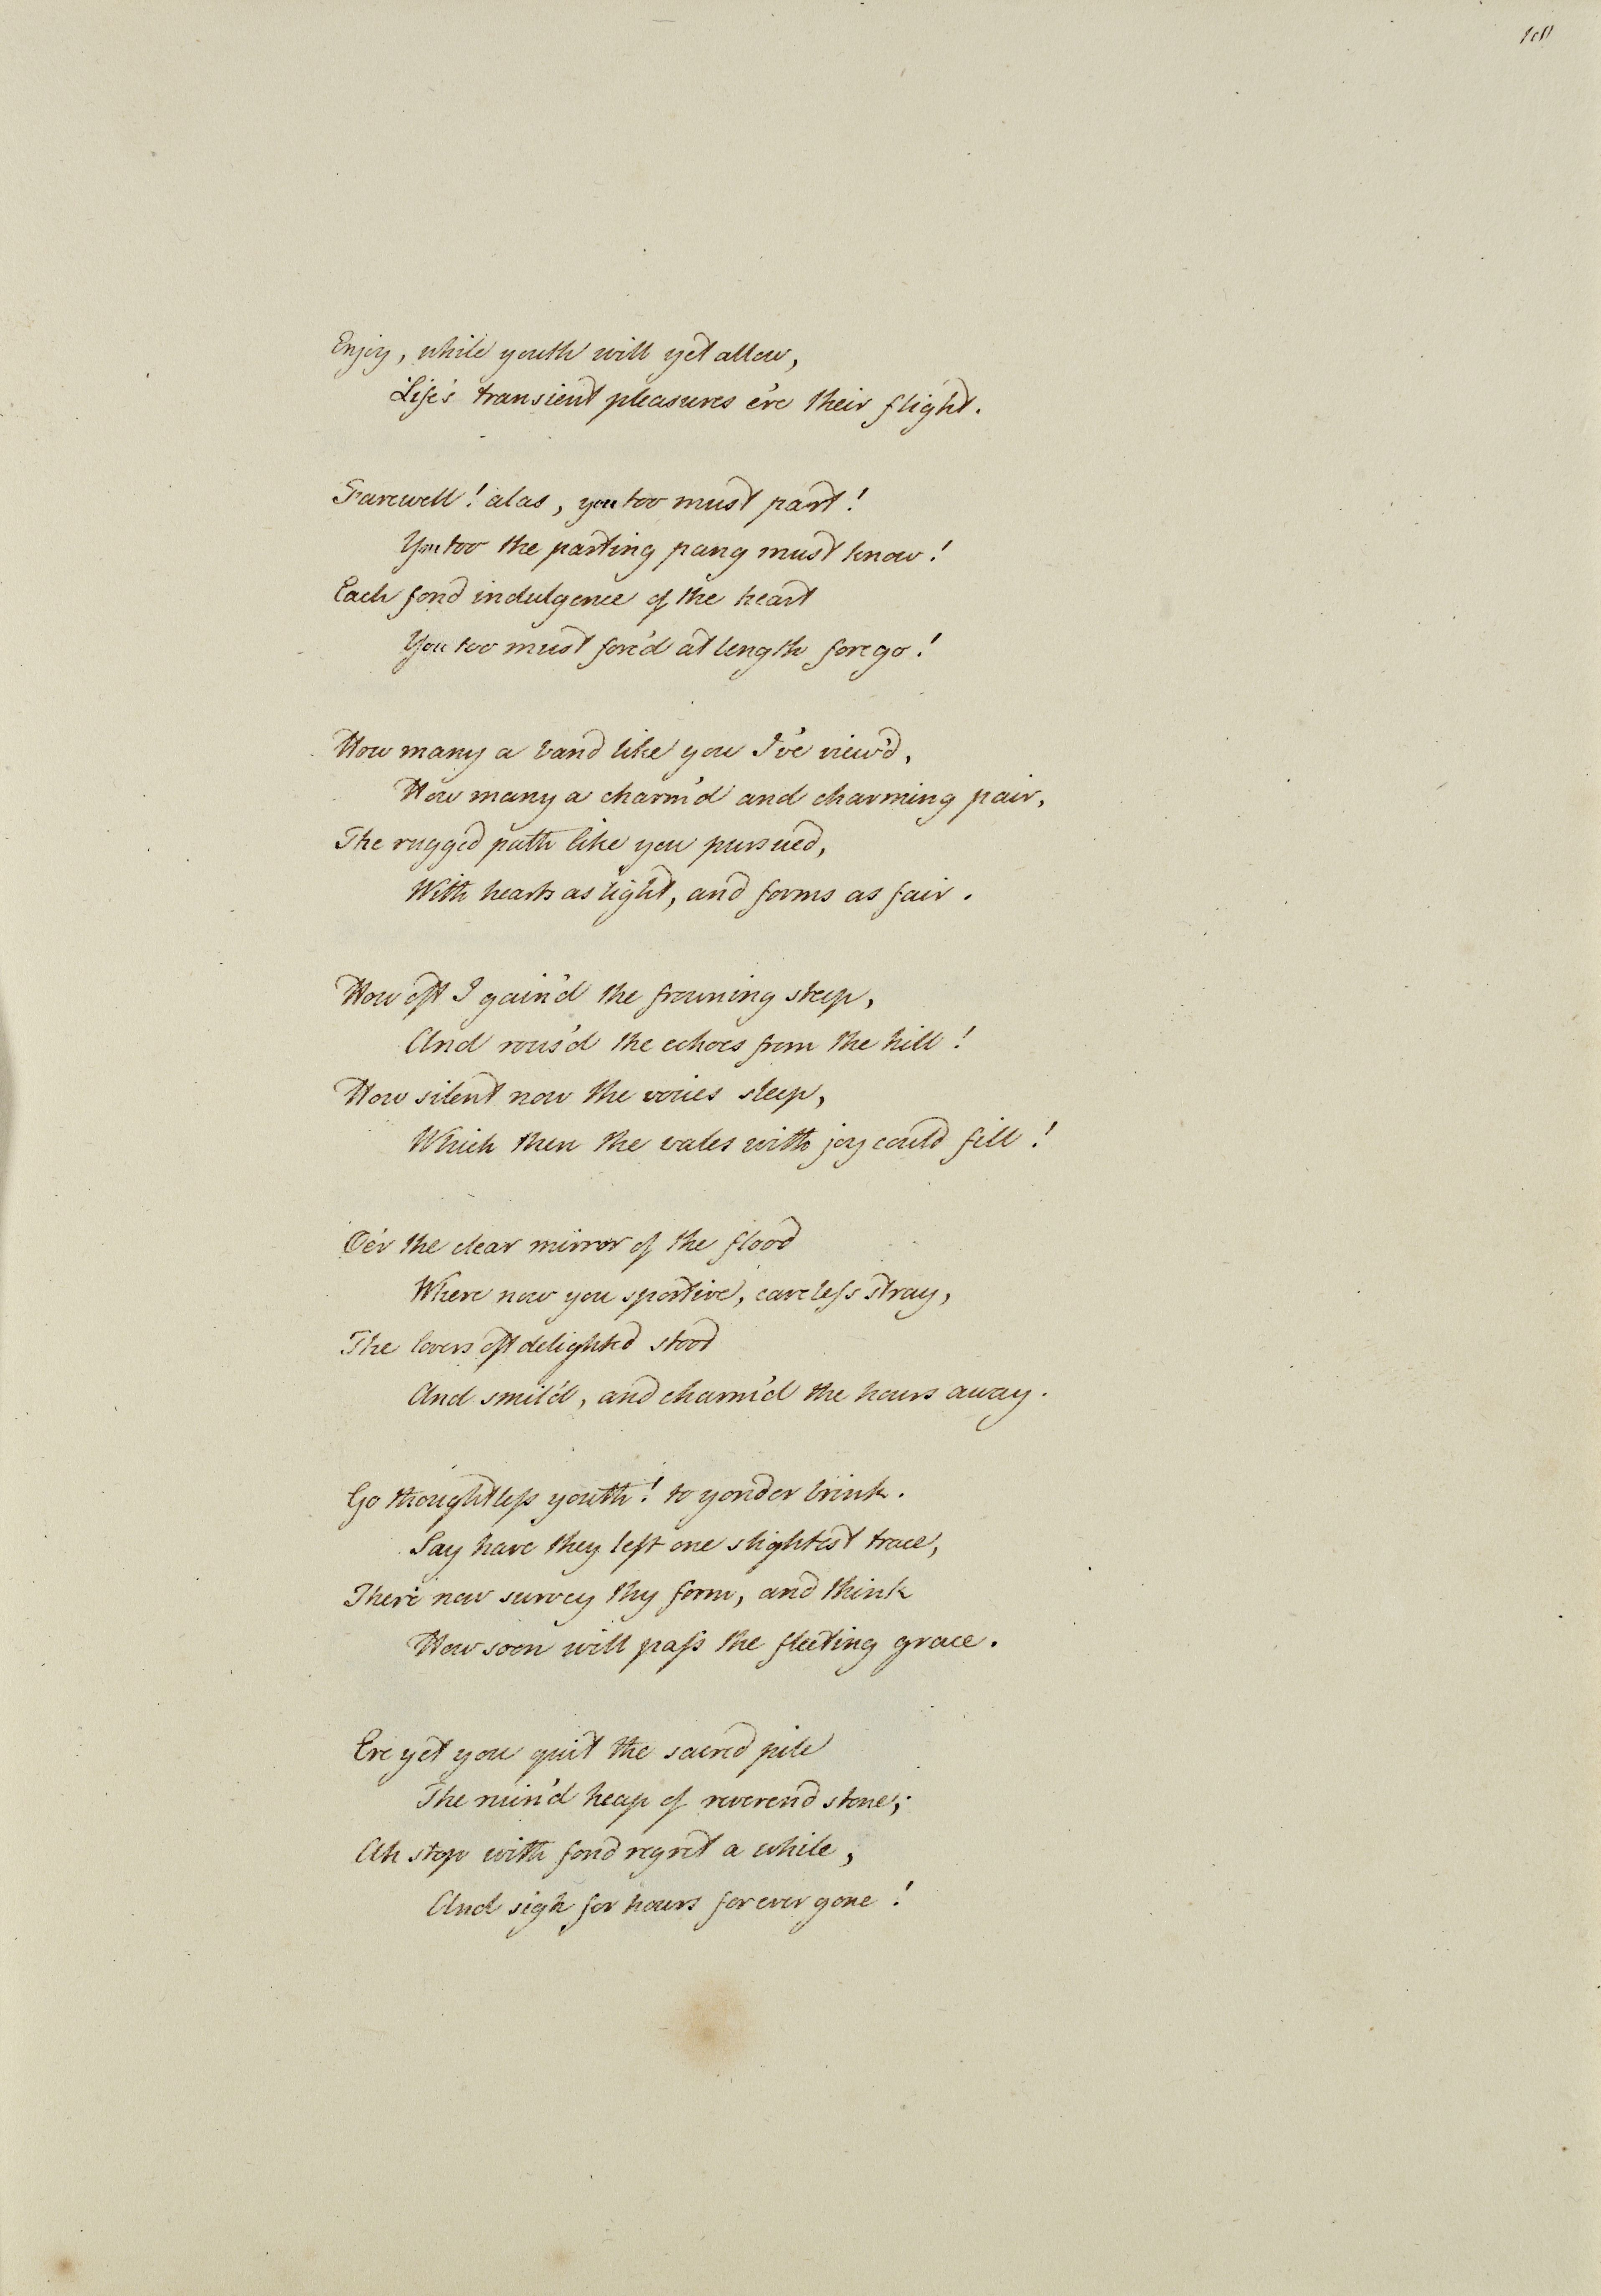 Enjoy, while youth will yet allow,
Life's transient pleasures e're their flight.
Farewell! alas, you too must part!
You too the parting pang must know!
Each fond indulgence of the heart
You too must forc'd at length forego!
How many a band like you I've view'd,
How many a charm'd and charming pair,
The rugged path like you pursued,
With hearts as light, and forms as fair.
How oft I gain'd the frowning steep,
And rous'd the echoes from the hill!
How silent now the voices sleep,
Which then the vales with joy could fill!
O'er the clear mirror of the flood
Where now you sportive, careless stray,
The lovers oft delighted stood
And smil'd, and charm'd the hours away.
Go thoughtless youth! to yonder brink.
Say have they left one slightest trace,
There now survey thy form, and think
How soon will pass the fleeting grace.
Ere yet you quit the sacred pile
The ruin'd heap of reverend stone;
Ah stop with fond regret a while,
And sigh for hours for ever gone!